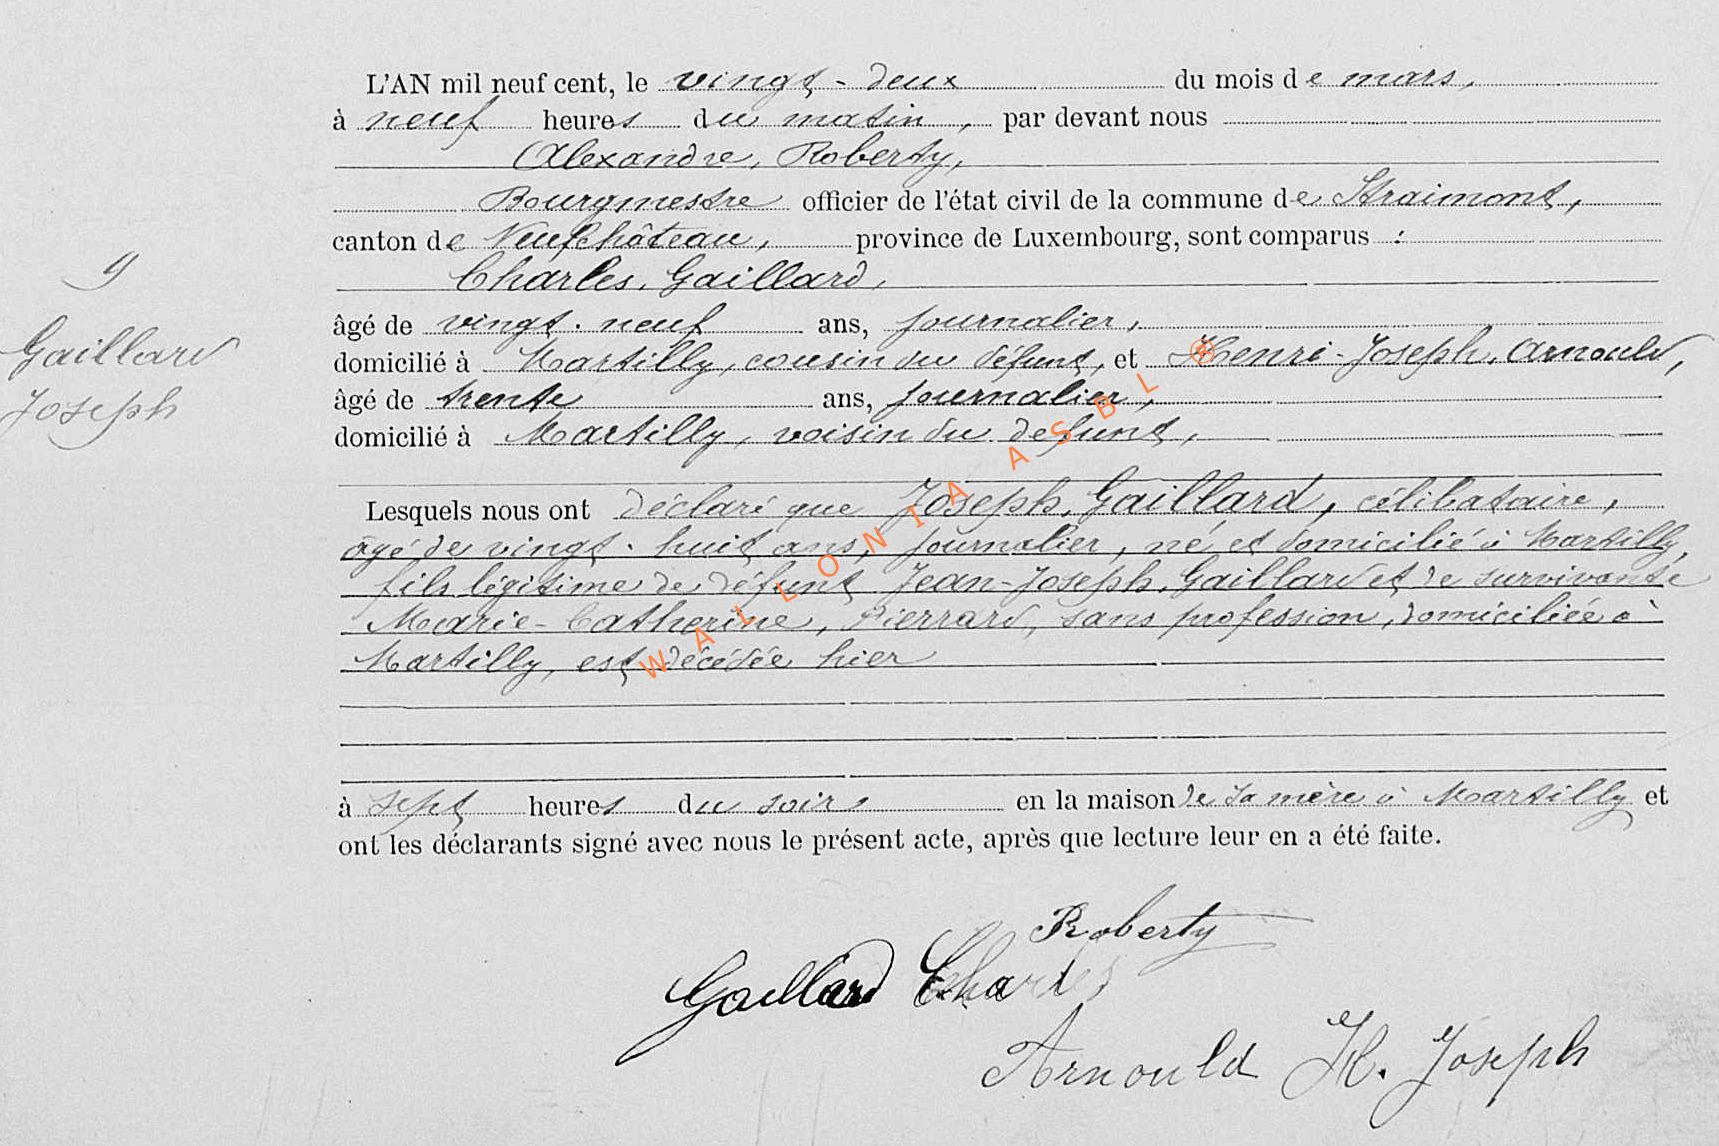 L'AN mil neuf cent, le vingt-deux du mois de mars,
à neuf heures du matin, par devant nous
Alexandre, Roberty,
Bourgmestre officier de l'état civil de la commune de Straimont,
canton de Neufchâteau, province de Luxembourg, sont comparus :
Charles, Gaillard,
âgé de vingt-neuf ans, journalier,
domicilié à Martilly, cousin du défunt, et Henri-Joseph, Arnould,
âgé de trente ans, journalier,
domicilié à Martilly, voisin du defunt,
9
Gaillard
Joseph
Lesquels nous ont déclaré que Joseph, Gaillard, célibataire,
âgé de vingt-huit ans, journalier, né et domicilié à Martilly,
fils légitime de défunt Jean-Joseph, Gaillard et de survivante
Marie-Catherine, Pierrard, sans profession, domiciliée à
Martilly, est décédée hier
à sept heures du soir, en la maison de sa mère à Martilly et
ont les déclarants signé avec nous le présent acte, après que lecture leur en a été faite.
Roberty
Gaillard Charles
Arnould H. Joseph
WALLONIA ASBL ®